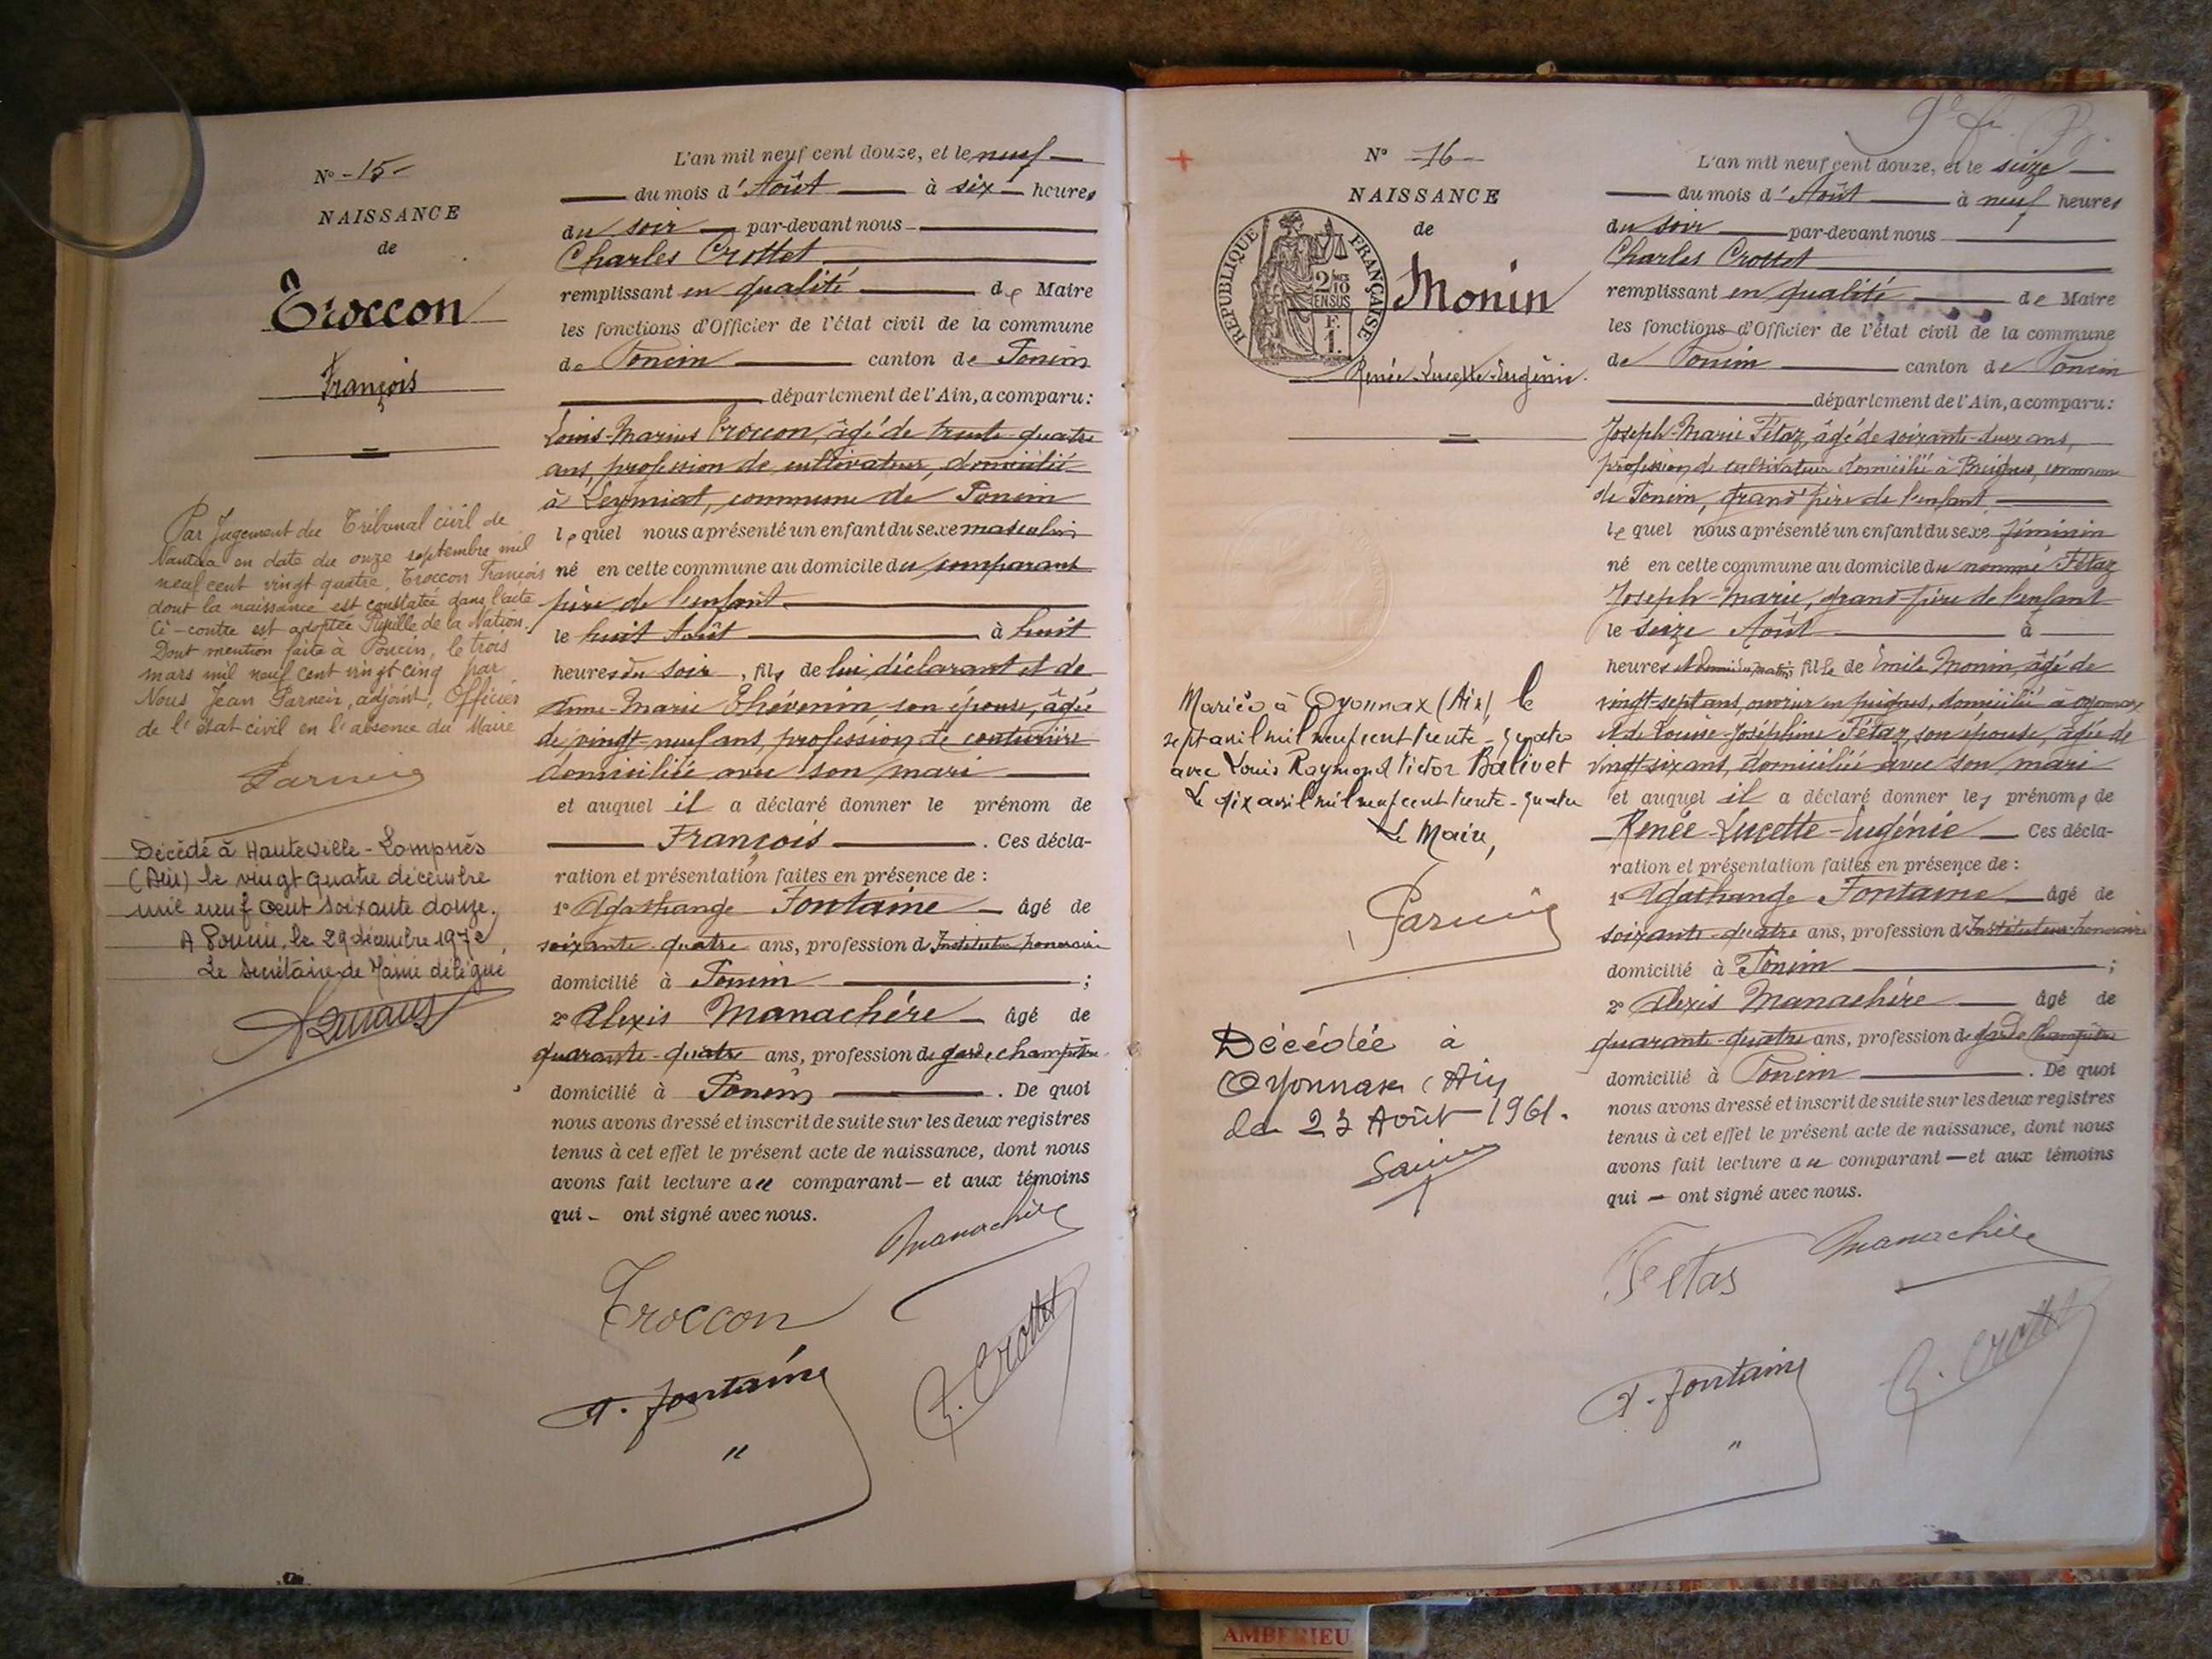 N° -15-
NAISSANCE
de
Troccon
François
Par Jugement du Tribunal civil de
Nantua en date du onze septembre mil
neuf cent vingt quatre, Troccon François
dont la naissance est constatée dans l'acte
ci-contre est adoptée Pupille de la Nation.
Dont mention faite à Poncin, le trois
mars mil neuf cent vingt cinq par
Nous Jean Parnein, adjoint, Officier
de l'état civil en l'absence du Maire
Décédé à Hauteville-Lompnès
(Ain) le vingt quatre décembre
mil neuf cent soixante douze.
A Poncin, le 29 décembre 1972
Le Secrétaire de Mairie délégué
L'an mil neuf cent douze, et le neuf
du mois d'Août à six heures
du soir par-devant nous
Charles Crottet
remplissant en qualité de Maire
les fonctions d'Officier de l'état civil de la commune
de Poncin canton de Poncin
département de l'Ain, a comparu:
Louis-Marius Troccon, âgé de trente-quatre
ans, profession de cultivateur, domicilié
à Leymiat, commune de Poncin
lequel nous a présenté un enfant du sexe masculin
né en cette commune au domicile du comparant
père de l'enfant
le huit Août à huit
heures du soir, fils de lui déclarant et de
Anne-Marie Thévenin, son épouse, âgée
de vingt-neuf ans, profession de couturière
domiciliée avec son mari
et auquel il a déclaré donner le prénom de
François. Ces décla-
ration et présentation faites en présence de :
1° Agathange Fontaine âgé de
soixante-quatre ans, profession d'Instituteur honoraire
domicilié à Poncin ;
2° Alexis Manachère âgé de
quarante-quatre ans, profession de garde champêtre
domicilié à Poncin. De quoi
nous avons dressé et inscrit de suite sur les deux registres
tenus à cet effet le présent acte de naissance, dont nous
avons fait lecture au comparant — et aux témoins
qui — ont signé avec nous.
Manachère
Troccon
A. Fontaine
C. Crottet
N° -16-
NAISSANCE
de
REPUBLIQUE FRANÇAISE
2/10 EN SUS
F. 1.
Monin
Renée-Lucette-Eugénie.
Mariée à Oyonnax (Ain), le
sept avril mil neuf cent trente-quatre
avec Louis Raymond Victor Balivet
Le dix avril mil neuf cent trente-quatre
Le Maire,
Décédée à
Oyonnax (Ain)
le 23 Août 1961.
L'an mil neuf cent douze, et le seize
du mois d'Août à neuf heures
du soir par-devant nous
Charles Crottet
remplissant en qualité de Maire
les fonctions d'Officier de l'état civil de la commune
de Poncin canton de Poncin
département de l'Ain, a comparu:
Joseph-Marie Fétaz, âgé de soixante-deux ans,
profession de cultivateur domicilié à Breignes, commune
de Poncin, grand'père de l'enfant
lequel nous a présenté un enfant du sexe féminin
né en cette commune au domicile du nommé Fétaz
Joseph-Marie, grand-père de l'enfant
le seize Août à
heures et demie du matin, fille de Emile Monin, âgé de
vingt-sept ans, ouvrier en peignes, domicilié à Oyonnax
et de Louise-Joséphine Fétaz, son épouse, âgée de
vingt six ans, domiciliée avec son mari
et auquel il a déclaré donner les prénoms de
Renée-Lucette-Eugénie Ces décla-
ration et présentation faites en présence de :
1° Agathange Fontaine âgé de
soixante-quatre ans, profession d'Instituteur honoraire
domicilié à Poncin ;
2° Alexis Manachère âgé de
quarante-quatre ans, profession de garde champêtre
domicilié à Poncin. De quoi
nous avons dressé et inscrit de suite sur les deux registres
tenus à cet effet le présent acte de naissance, dont nous
avons fait lecture au comparant — et aux témoins
qui — ont signé avec nous.
Fetas
Manachère
A. Fontaine
C. Crottet
AMBERIEU